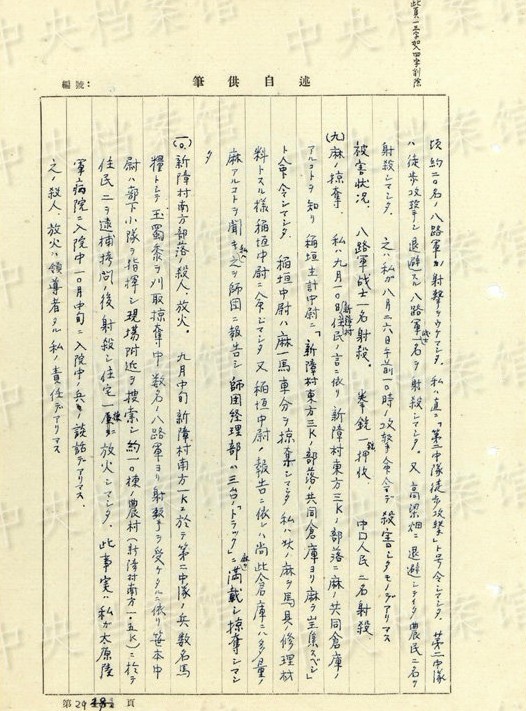 此頁一三字加四字削除
述自供筆
編號：
頃約二〇名ノ八路軍ヨリ射撃ヲウケマシタ。私ハ直ニ「第二中隊徒歩攻撃」ト号令シマシタ。第二中隊
ハ徒歩攻撃シ退避スル八路軍一名ヲ射殺シマシタ。又高梁畑ニ退避シテイタ農民二名ヲ
射殺シマシタ。之ハ私ガ八月二六日午前一〇時ノ攻撃命令デ殺害シタモノデアリマス
被害状況。八路軍战士一名射殺。拳銃一押收。中国人民二名射殺
(九)麻ノ掠奪。私ハ九月一〇日住民ノ言ニ依リ新障村東方三Kノ部落ニ麻ノ共同倉庫ノ
アルコトヲ知リ稲垣主計中尉ニ「新障村東方三Kノ部落ノ共同倉庫ヨリ麻ヲ蒐集スベシ」
ト命令シマシタ。稲垣中尉ハ麻一馬車分ヲ掠奪シマシタ私ハ此ノ麻ヲ馬具修理材
料トスル様稲垣中尉ニ命ジマシタ又稲垣中尉ノ報告ニ依レバ尚此倉庫ニハ多量ノ
麻アルコトヲ聞キ私ハ之ヲ師団ニ報告シ師団経理部ハ三台ノ「トラック」ニ満載シ掠奪シマシ
タ
(一〇)新障村南方部落ノ殺人、放火。九月中旬新障村南方一Kニ於テ第二中隊ノ兵数名馬
糧トシテ玉蜀黍ヲ刈取掠奪中数名ノ八路軍ヨリ射撃ヲ受ケタルニ依リ笹本中
尉ハ部下小隊ヲ指揮シ現場附近ヲ捜索シ約一〇棟ノ農村(新障村南方一・五K)ニ於テ
住民二ヲ逮捕拷問ノ後射殺シ住宅一棟ニ放火シマシタ。此事実ハ私ガ太原陸
軍病院ニ入院中一〇月中旬ニ入院中ノ兵ノ談話デアリマス。
之ノ殺人、放火ハ領導者タル私ノ責任デアリマス
第29頁